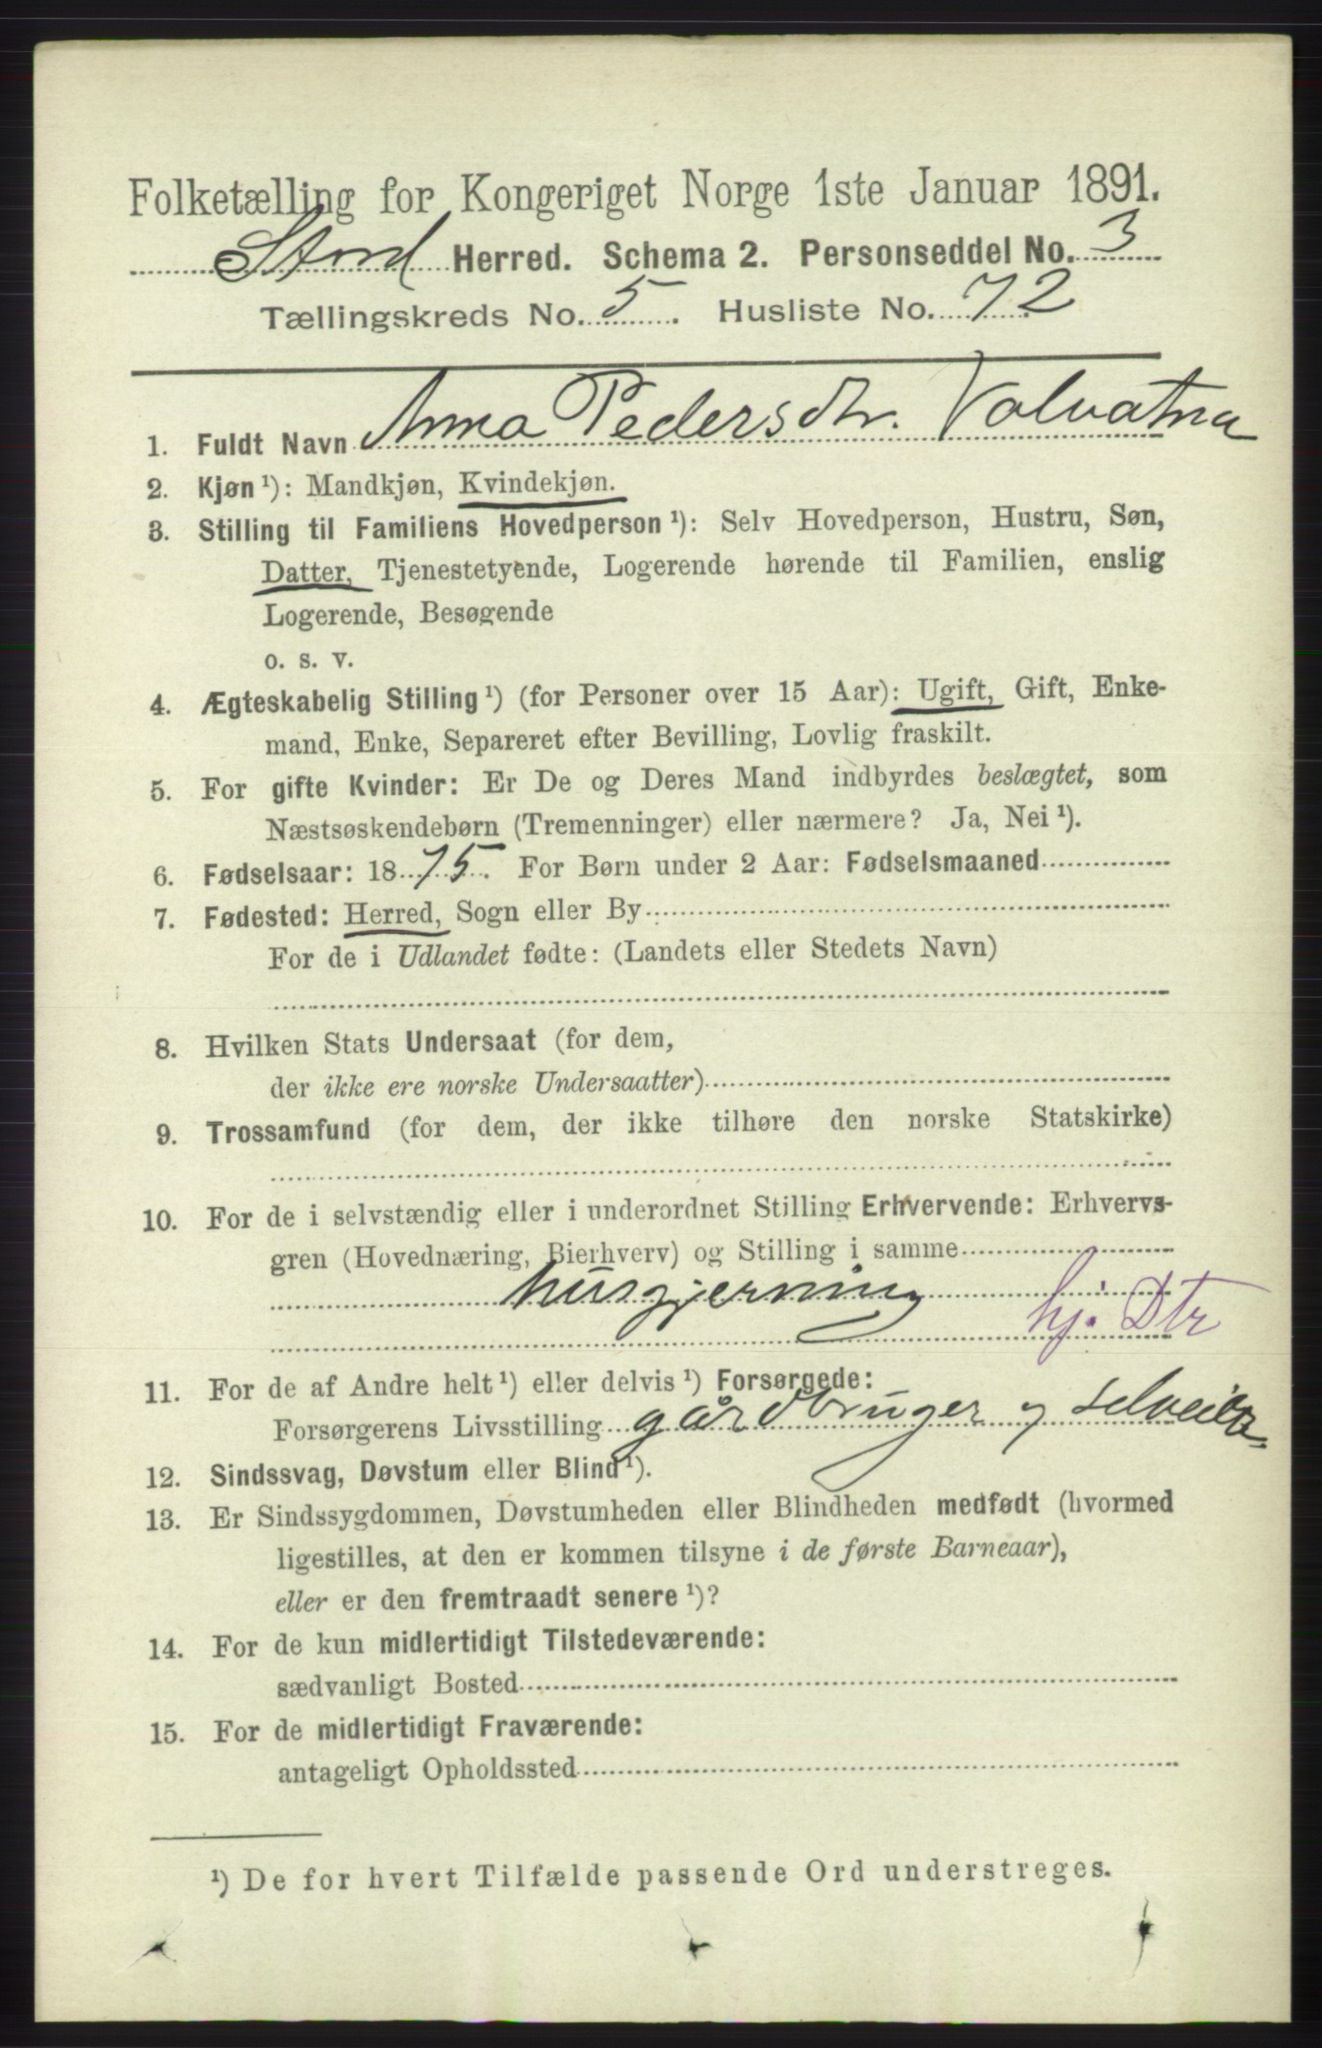 Folketælling for Kongeriget Norge 1ste Januar 1891.
Stord Herred. Schema 2. Personseddel No. 3
Tællingskreds No. 5. Husliste No. 72
1. Fuldt Navn Anna Pedersdtr. Valvatna
2. Kjøn ¹): Mandkjøn, Kvindekjøn.
3. Stilling til Familiens Hovedperson ¹): Selv Hovedperson, Hustru, Søn,
Datter, Tjenestetyende, Logerende hørende til Familien, enslig
Logerende, Besøgende
o. s. v.
4. Ægteskabelig Stilling ¹) (for Personer over 15 Aar): Ugift, Gift, Enke-
mand, Enke, Separeret efter Bevilling, Lovlig fraskilt.
5. For gifte Kvinder: Er De og Deres Mand indbyrdes beslægtet, som
Næstsøskendebørn (Tremenninger) eller nærmere? Ja, Nei ¹).
6. Fødselsaar: 1875. For Børn under 2 Aar: Fødselsmaaned
7. Fødested: Herred, Sogn eller By
For de i Udlandet fødte: (Landets eller Stedets Navn)
8. Hvilken Stats Undersaat (for dem,
der ikke ere norske Undersaatter)
9. Trossamfund (for dem, der ikke tilhøre den norske Statskirke)
10. For de i selvstændig eller i underordnet Stilling Erhvervende: Erhvervs-
gren (Hovednæring, Bierhverv) og Stilling i samme
husgjerning hj. Dtr
11. For de af Andre helt ¹) eller delvis ¹) Forsørgede:
Forsørgerens Livsstilling gårdbruger og selveier
12. Sindssvag, Døvstum eller Blind ¹).
13. Er Sindssygdommen, Døvstumheden eller Blindheden medfødt (hvormed
ligestilles, at den er kommen tilsyne i de første Barneaar),
eller er den fremtraadt senere ¹)?
14. For de kun midlertidigt Tilstedeværende:
sædvanligt Bosted
15. For de midlertidigt Fraværende:
antageligt Opholdssted
¹) De for hvert Tilfælde passende Ord understreges.